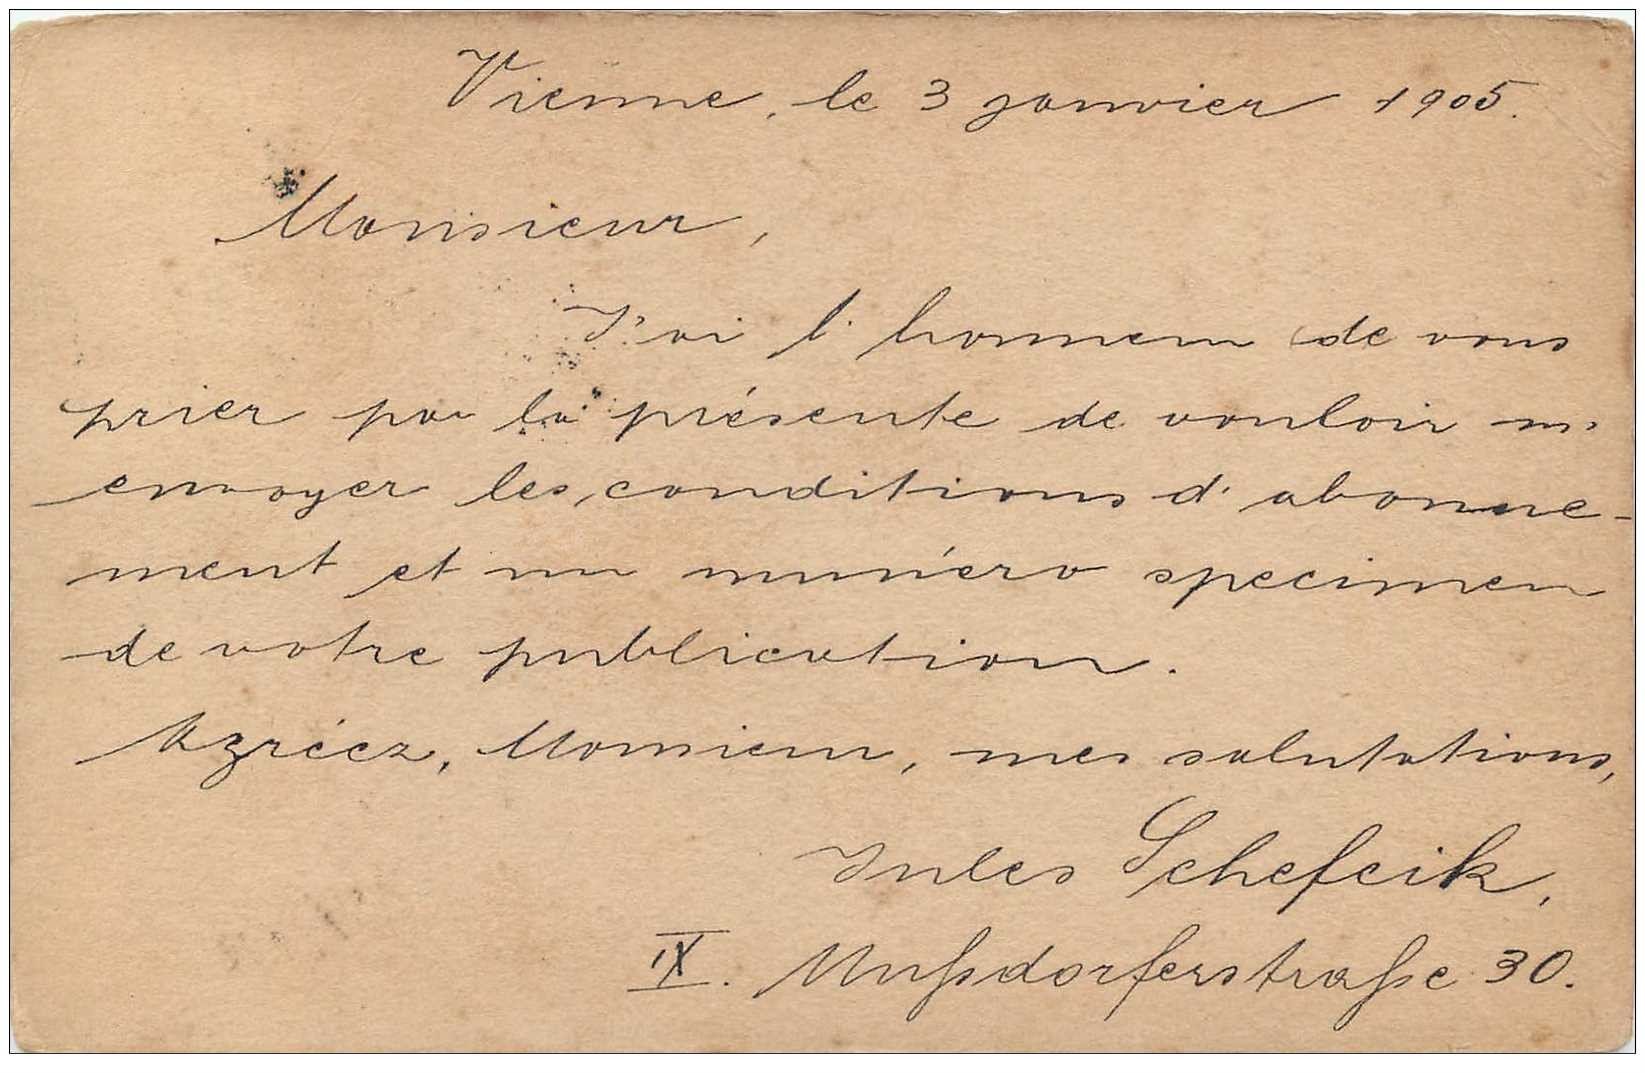 Vienne, le 3 janvier 1905.
Monsieur,
J'ai l'honneur de vous
prier par la présente de vouloir m'
envoyer les conditions d'abonne-
ment et un numéro specimen
de votre publication.
Agréez, Monsieur, mes salutations,
Jules Schefcik,
IX. Nußdorferstraße 30.